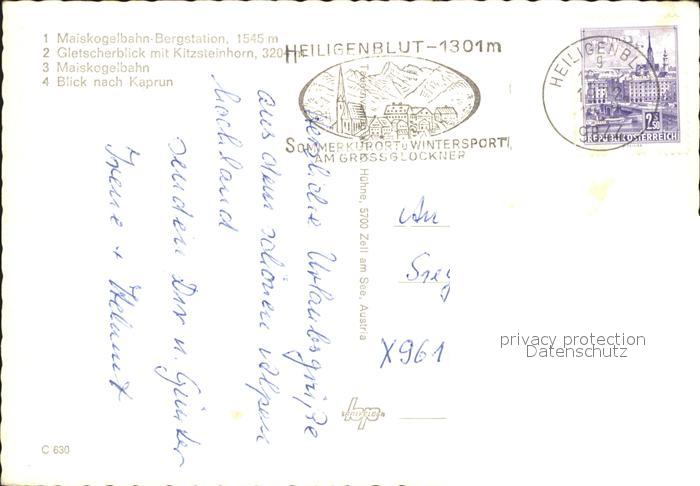 1 Maiskogelbahn-Bergstation, 1545 m
2 Gletscherblick mit Kitzsteinhorn, 320
3 Maiskogelbahn
4 Blick nach Kaprun
HEILIGENBLUT-1301m
SOMMERKURORT u WINTERSPORT
AM GROSSGLOCKNER
HEILIGENBL
9
2.50
REPUBLIK ÖSTERREICH
Herzliche Urlaubsgrüße
aus dem schönen Alpen
hochland
senden Dir u. Günter
Irene + Helmut
Hühne, 5700 Zell am See, Austria
An
X961
privacy protection
Datenschutz
C 630